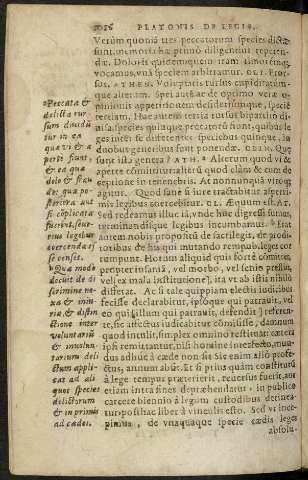 1036 PLATONIS DE LEGIB.
Verùm quoniã tres peccatorum species
sunt, memoria hæc primò diligenter
Doloris quidem quem iram timoremq;
vocamus, vnã speciem arbitramur. CLI.
sus. ATHEN. Voluptatis rursus cupiditatum-
que alteram. Spei autem & de optimo veræ o-
pinionis appetitionem desideriumque, speciē
tertiam. Huc autem tertia rursus bipartitò di-
species quinque peccatorũ sunt, quibus le-
ges inter se differentes speciebus quinque, in
duobus generibus sunt ponendæ. CLIN. Quæ
sunt ista genera? ATH. Alterum quod vi &
apertè committitur: alterũ quod clàm & cum de
ceptione in tenebris. At nonnunquã vtroq;
agitur. Quod sanè si iure tractabitur asperri-
mis legibus coercebitur. CL. Æquum est. AT.
Sed redeamus illuc iã, vnde huc digressi sumus,
terminandisque legibus incumbamus. Erat
autem nobis propositũ de sacrilegis, de prodi-
toribus & his qui mutando rempub. leges cor
rumpunt. Horum aliquid quis fortè committet,
propter insaniã, vel morbo, vel senio pressus,
vel
differat. Ac si tale quippiam electis iudicibus
fecisse declarabitur, ipsóque qui patrauit, vel
eo qui illum qui patrauit, defendit
te, sic affectus iudicabitur cómisisse, damnum
quod intulit, simplex omnino restituat: cæterà
ipsi remittantur, nisi homine interfecto, nun-
dus adhuc à cæde non sit. Sic enim aliò profe-
ctus, annum abũt. Et si prius quàm constitutũ
à lege tempus præterierit, reuersus fuerit, aut
etiam intra fines deprehendatur, in publico
carcere biennio à legum custodibus detinea-
tur: post hac liber à vinculis esto. Sed vt ince-
pimus, de vnaquaque specie cædis leges
absolu-
Peccata &
delicta rur-
sum diuidũ
tur in ea
quæ vi & a
pertè fiunt,
& ea quæ
dolo & frau
de: quæ po-
steriora aut
si cóplicata
fuerint, seue-
rius legibus
coercenda es
se censet.
Quo modo
deceat de di
scrimine no-
xæ & iniu-
riæ, & distin
ctione inter
voluntariũ
& inuolun-
tarium deli
ctum appli-
cat ad ali
quot species
delictorum
& in primis
ad cædes.